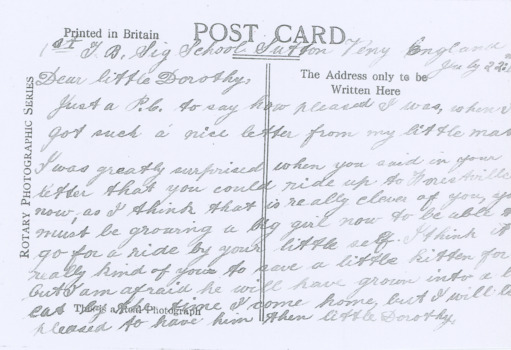 Printed in Britain
POST CARD
1st T.B. Sig School Sutton Veny England
July 22
Dear little Dorothy,
The Address only to be
Written Here
Just a P.C. to say how pleased I was, when I
got such a nice letter from my little
I was greatly surprised when you said in your
letter that you could ride up to
now, as I think that is really clever of you,
must be growing a big girl now to be able
go for a ride by your little self. I think
really kind of you to save a little kitten for
but I am afraid he will have grown into a
cat by the time I come home, but I will
This is a Real Photograph
pleased to have him then little Dorothy.
ROTARY PHOTOGRAPHIC SERIES